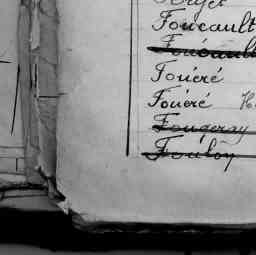 Foucault
Foucault
Fouéré
Fouéré
Fougeray